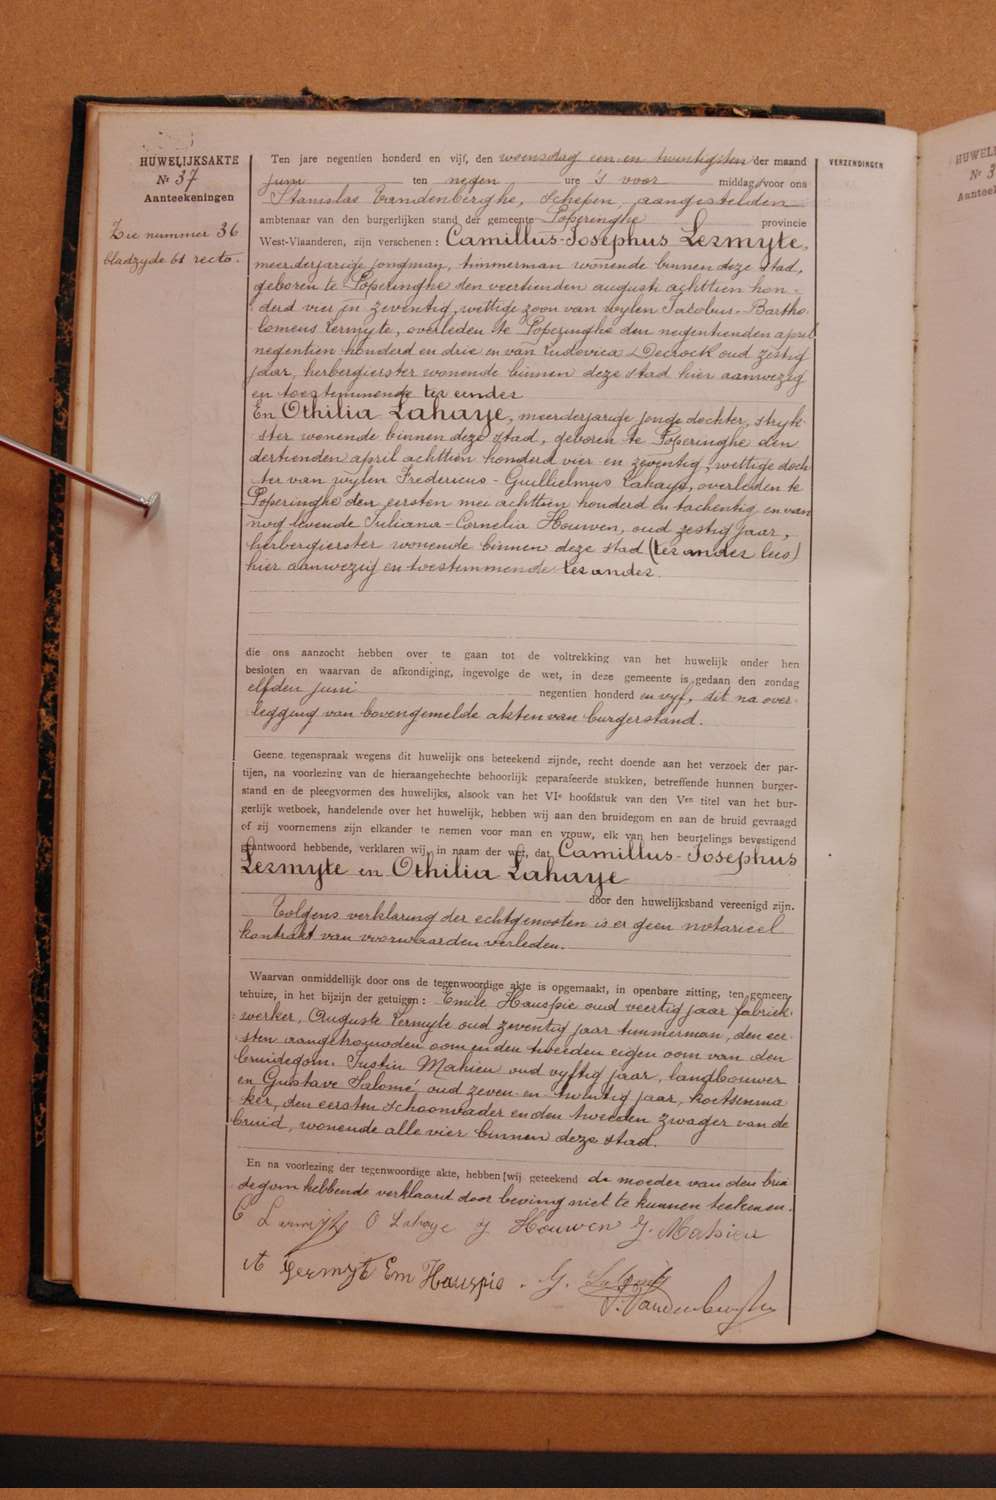 HUWELIJKSAKTE
Nr 37
Aanteekeningen
Zie nummer 36
bladzyde 61 recto.
Ten jare negentien honderd en vijf, den woensdag een en twintigsten der maand
juni ten negen ure 's voor middag, voor ons
Stanislas Vandenberghe, schepen, aangestelden
ambtenaar van den burgerlijken stand der gemeente Poperinghe provincie
West-Vlaanderen, zijn verschenen : Camillus-Josephus Lermyte,
meerderjarige jongman, timmerman wonende binnen deze stad,
geboren te Poperinghe den veertienden augusti achttien hon-
derd vier en zeventig, wettige zoon van wylen Jacobus-Bartho-
lomeus Lermyte, overleden te Poperinghe den negentienden april
negentien honderd en drie en van Ludovica Decrock oud zestig
jaar, herbergierster wonende binnen deze stad hier aanwezig
en toestemmende ter eender
En Othilia Lahaye, meerderjarige jonge dochter, stryk-
ster wonende binnen deze stad, geboren te Poperinghe den
dertienden april achttien honderd vier en zeventig, wettige doch-
ter van wylen Fredericus-Guillielmus Lahaye, overleden te
Poperinghe den eersten mei achttien honderd en tachentig en van
nog levende Juliana-Cornelia Houwen, oud zestig jaar,
herbergierster wonende binnen deze stad (ter ander lees)
hier aanwezig en toestemmende ter ander.
die ons aanzocht hebben over te gaan tot de voltrekking van het huwelijk onder hen
besloten en waarvan de afkondiging, ingevolge de wet, in deze gemeente is gedaan den zondag
elfden juni negentien honderd en vyf, dit na over-
legging van bovengemelde akten van burgerstand.
Geene tegenspraak wegens dit huwelijk ons beteekend zijnde, recht doende aan het verzoek der par-
tijen, na voorlezing van de hieraangehechte behoorlijk geparafeerde stukken, betreffende hunnen burger-
stand en de pleegvormen des huwelijks, alsook van het VIe hoofdstuk van den Ven titel van het bur-
gerlijk wetboek, handelende over het huwelijk, hebben wij aan den bruidegom en aan de bruid gevraagd
of zij voornemens zijn elkander te nemen voor man en vrouw, elk van hen beurtelings bevestigend
geantwoord hebbende, verklaren wij, in naam der wet, dat Camillus-Josephus
Lermyte en Othilia Lahaye
door den huwelijksband vereenigd zijn.
Volgens verklaring der echtgenoten is er geen notarieel
kontrakt van voorwaarden verleden.
Waarvan onmiddellijk door ons de tegenwoordige akte is opgemaakt, in openbare zitting, ten gemeen-
tehuize, in het bijzijn der getuigen : Emile Hauspie oud veertig jaar fabriek-
werker, Auguste Lermyte oud zeventig jaar timmerman, den eer-
sten aangetrouwden oom en den tweeden eigen oom van den
bruidegom. Justin Mahieu oud vyftig jaar, landbouwer
en Gustave Salomé, oud zeven en twintig jaar, koetsenma-
ker, den eersten schoonvader en den tweeden zwager van de
bruid, wonende alle vier binnen deze stad.
En na voorlezing der tegenwoordige akte, hebben wij geteekend de moeder van den brui-
degom hebbende verklaard door beving niet te kunnen teekenen.
C Lermyte O Lahaye J Houwen J. Mahieu
A Lermyte Em Hauspie. G. Salomé
S. Vandenberghe
VERZENDINGEN